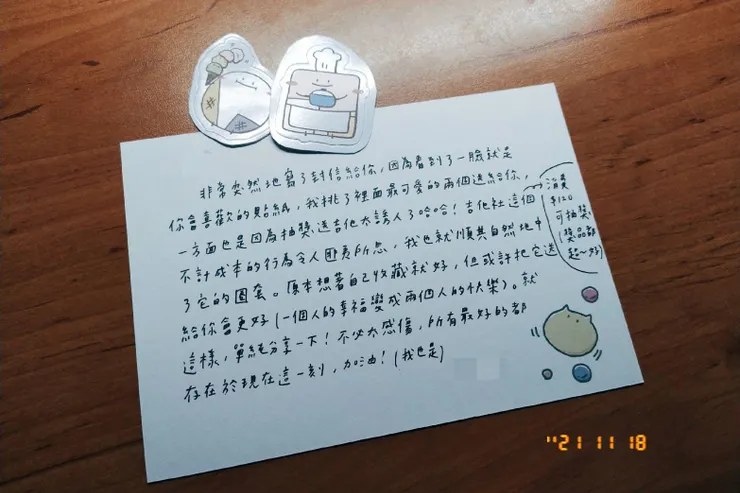 非常突然地寫了封信給你，因為看到了一臉就是
你會喜歡的貼紙，我挑了裡面最可愛的兩個送給你，
一方面也是因為抽獎送吉他太誘人了哈哈！吉他社這個
不計成本的行為令人匪夷所思，我也就順其自然地中
了它的圈套。原本想著自己收藏就好，但或許把它送
給你會更好(一個人的幸福變成兩個人的快樂)。就
這樣，單純分享一下！不必太感傷，所有最好的都
存在於現在這一刻，加油！(我也是)
消費
$120
可抽獎
(獎品都
超～好)
'21 11 18